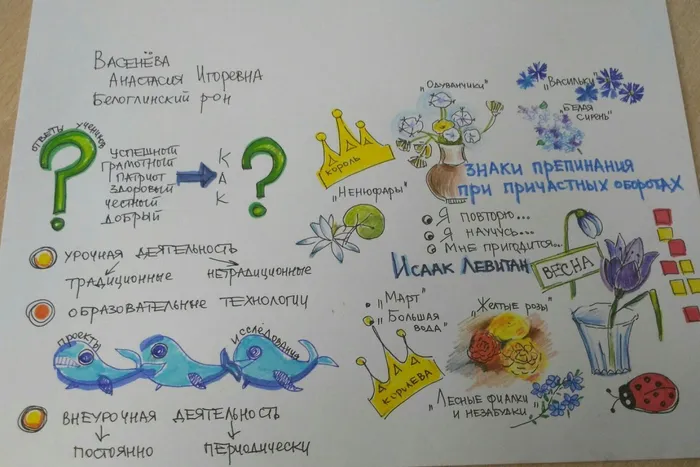 Васенёва
Анастасия Игоревна
Белоглинский р-он
ответы учеников
?
успешный
грамотный
патриот
здоровый
честный
добрый
К
А
К
?
урочная деятельность
традиционные нетрадиционные
образовательные технологии
проекты
исследования
внеурочная деятельность
постоянно периодически
король
„Одуванчики"
„Васильки"
„Белая
сирень"
„Ненюфары"
знаки препинания
при причастных оборотах
Я повторю...
Я научусь...
Мне пригодится...
Исаак Левитан
весна
„Март"
„Большая
вода"
„Желтые розы"
королева
„Лесные фиалки
и незабудки"